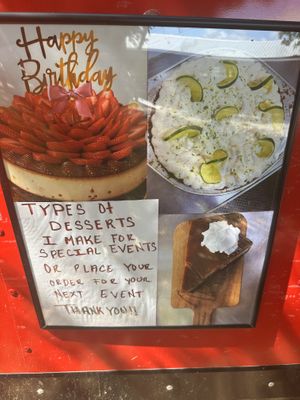 Happy
Birthday
TYPES Of
DESSERTS
I MAKE FOR
SPECIAL EVENTS
OR PLACE YOUR
ORDER FOR YOUR
NEXT EVENT
THANK YOU!!